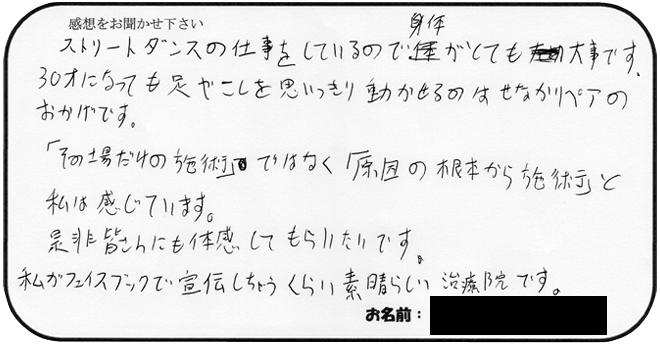 感想をお聞かせ下さい
ストリートダンスの仕事をしているので身体がとても大事です。
30才になっても足やこしを思いっきり動かせるのはせなかリペアの
おかげです。
「その場だけの施術」ではなく「原因の根本から施術」と
私は感じています。
是非皆さんにも体感してもらいたいです。
私がフェイスブックで宣伝しちゃうくらい素晴らしい治療院です。
お名前：